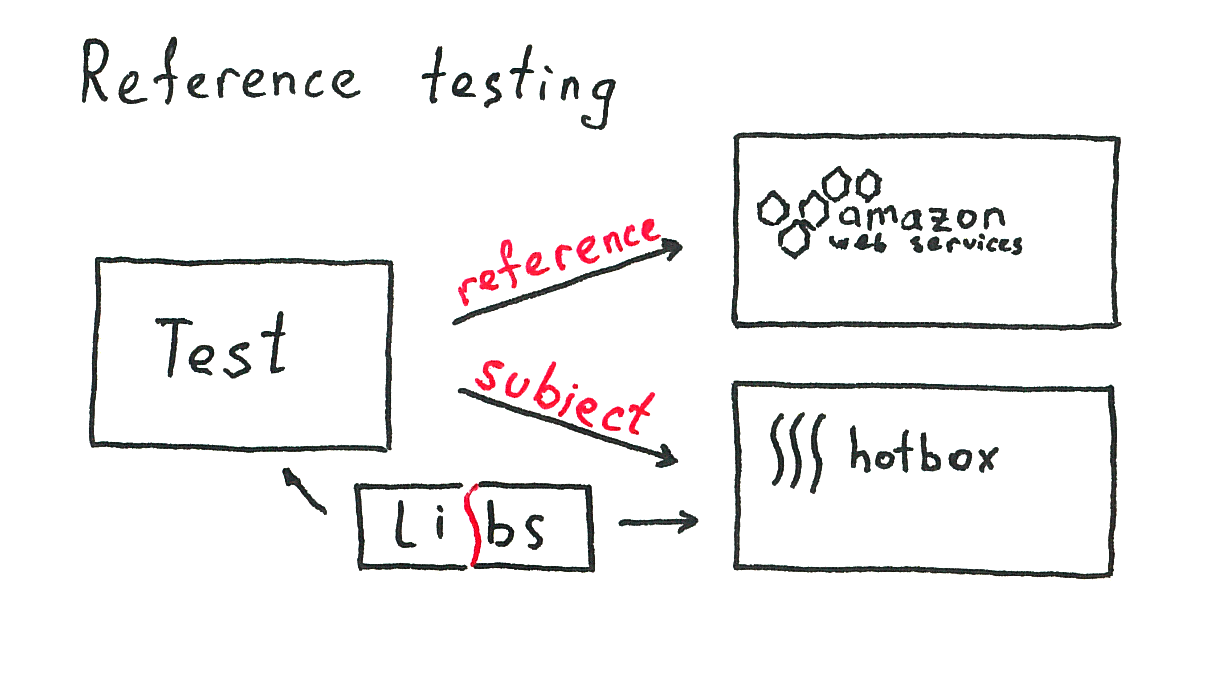 Reference testing
reference
amazon
web services
Test
subject
hotbox
Libs